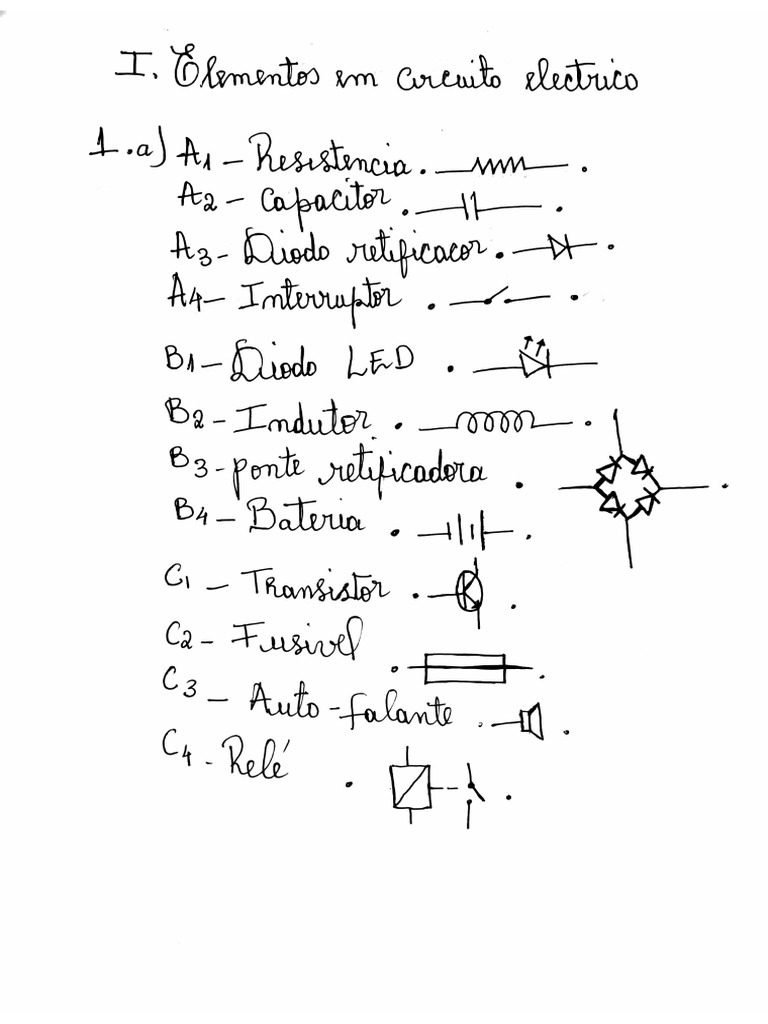 I. Elementos em circuito electrico
1.a) A1 - Resistencia.
A2 - Capacitor.
A3 - Diodo retificacor.
A4 - Interruptor.
B1 - Diodo LED.
B2 - Indutor.
B3 - ponte retificadora.
B4 - Bateria.
C1 - Transistor.
C2 - Fusivel.
C3 - Auto-falante.
C4 - Relé.